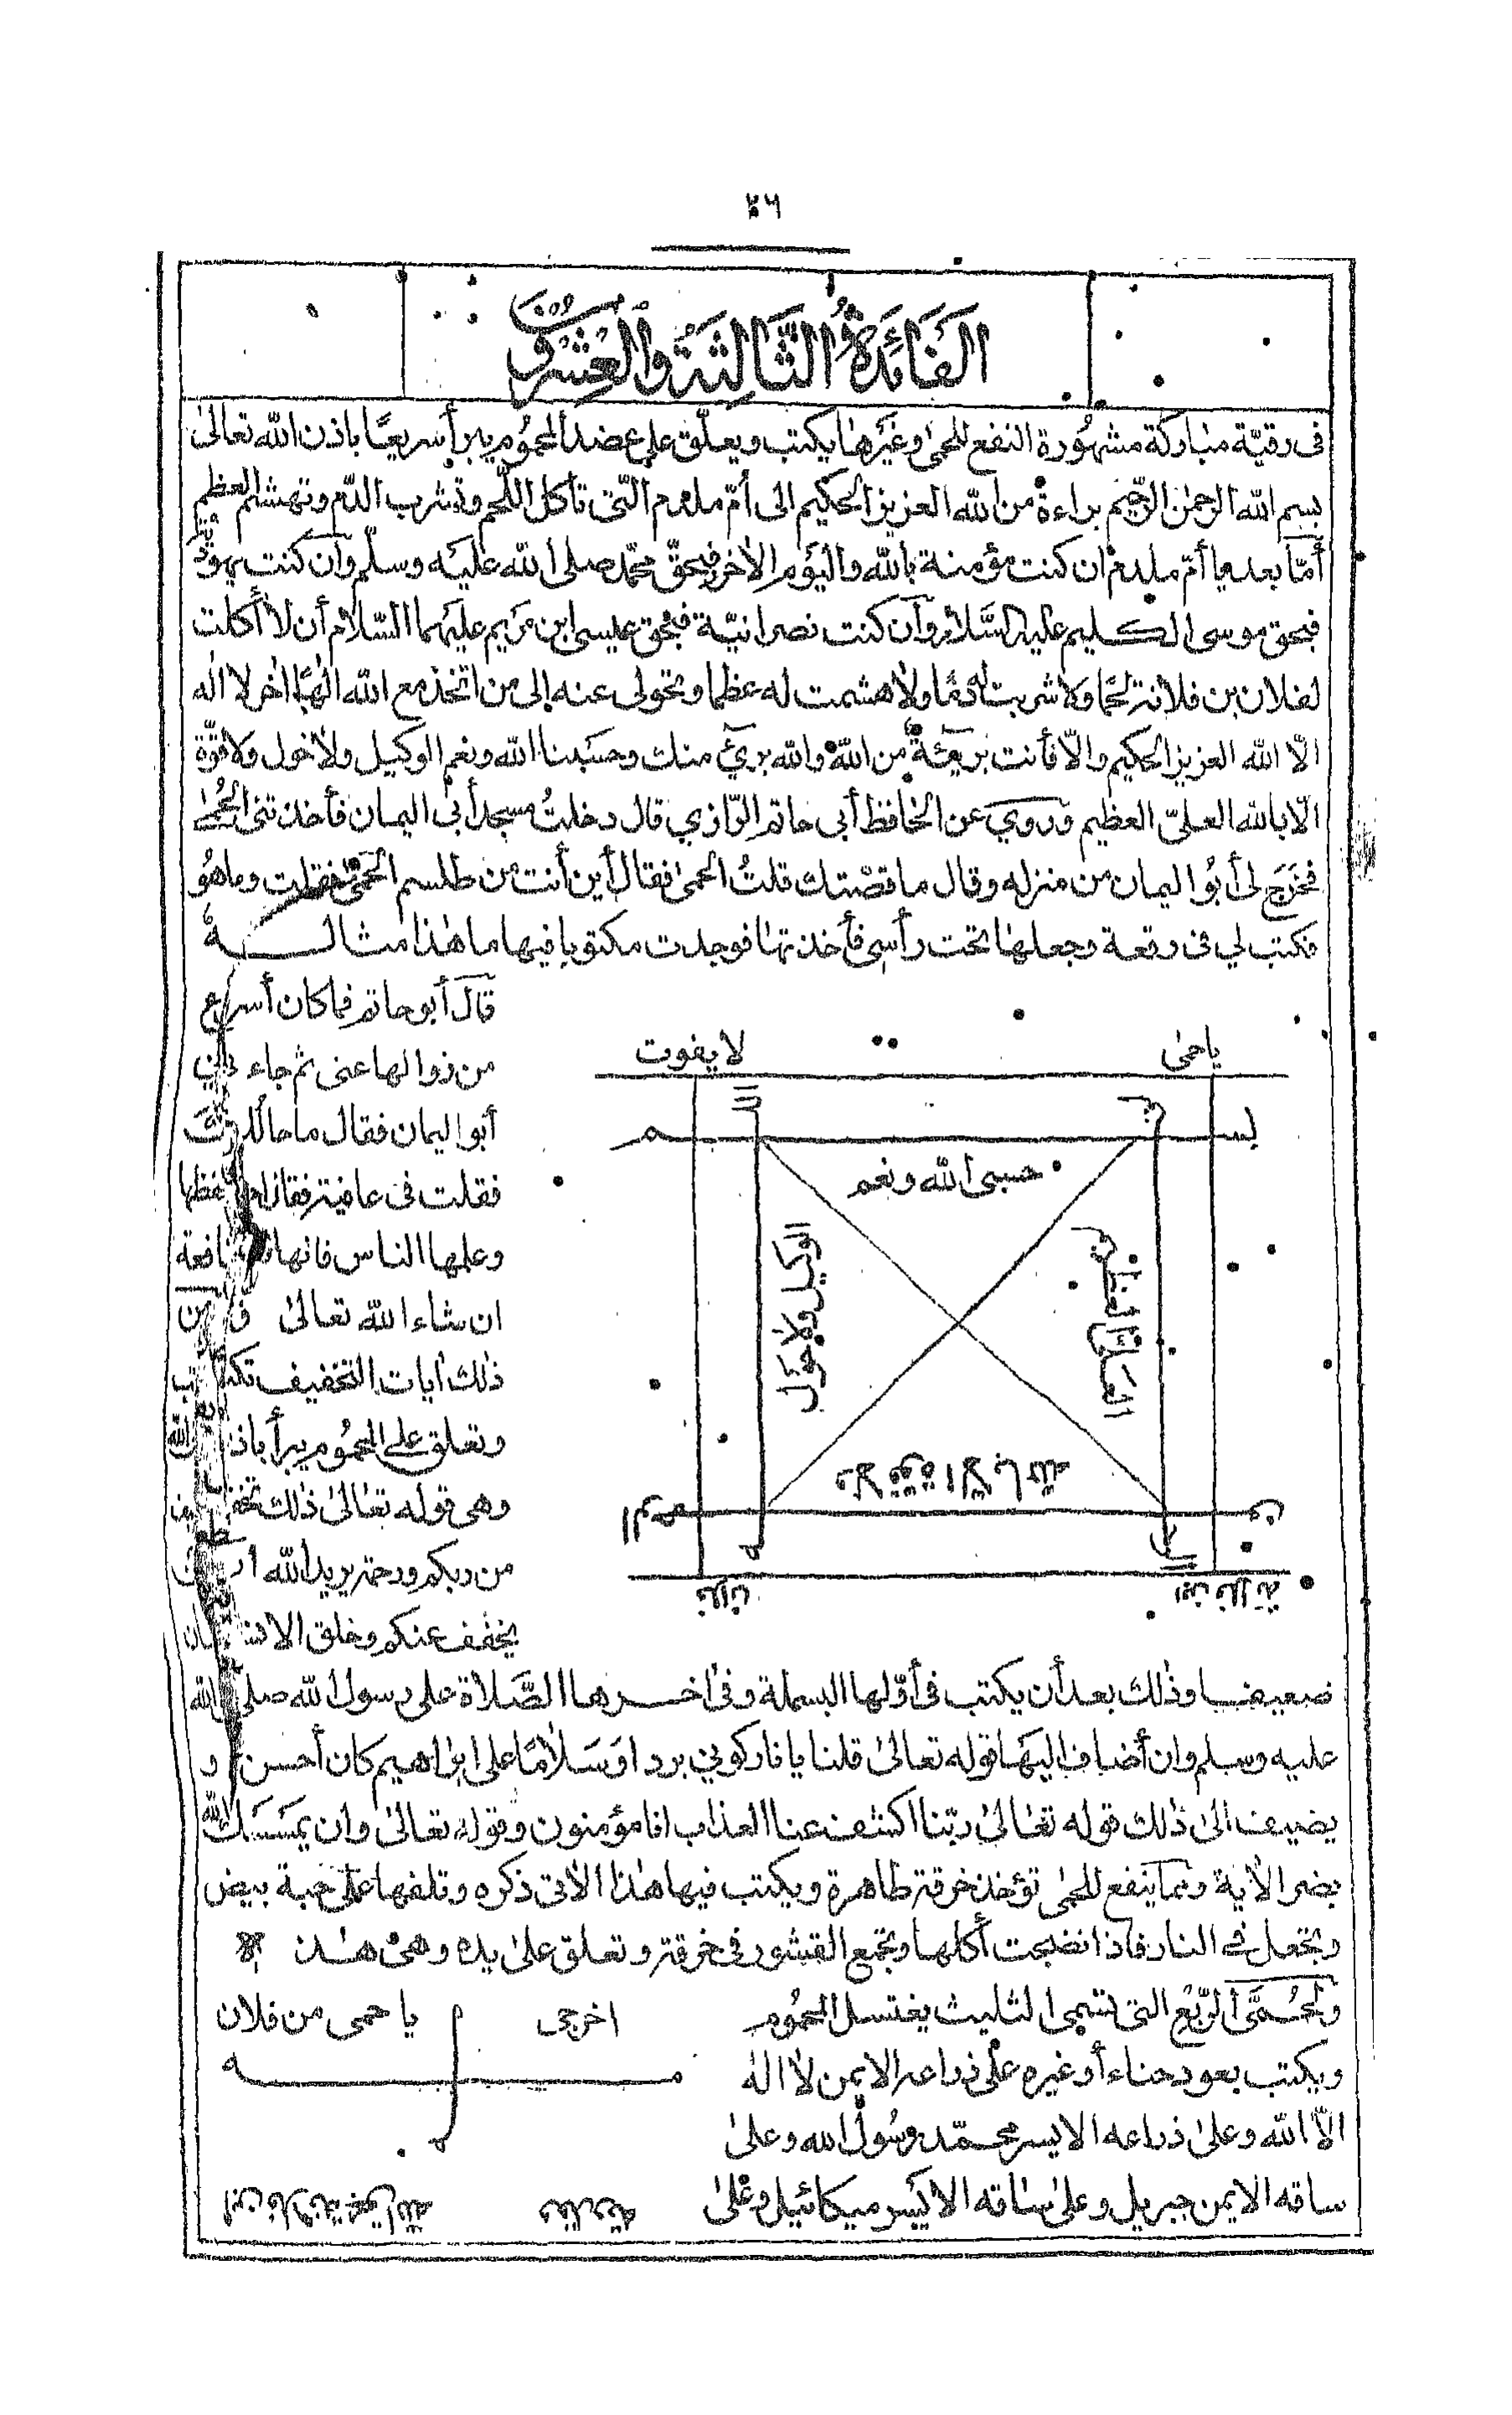 ٤٦
الفَائِدَةُ الثَّالِثَةُ وَالْعِشْرُونَ
فى رقيّة مباركة مشهُورة النفع للحمىٰ وغَيْرها يكتب ويعلّق على عضد المحمُوم يبرأ سريعًا باذن الله تعالىٰ
بسم الله الرحمٰن الرّحيم براءة من الله العزيز الحكيم الى أمّ ملدم التى تأكل اللّحم وتشرب الدّم وتهشم العظم
أمّا بعد يا أمّ ملدم ان كنت مؤمنة بالله واليَوْم الاٰخر فبحقّ محمّد صلى الله عليْه وسلّم وان كنت يهوديّة
فبحق موسى الكليم عليه السَّلام وان كنت نصرانيّة فبحق عيسى ابن مريم عليهما السّلام أن لا أكلت
لفلان بن فلانة لحمًا ولا شربت له دمًا ولا هشمت له عظما وتحولى عنه إلى من اتخذ مع الله الٰهًا اٰخر لا اله
الّا الله العزيز الحكيم والّا فأنت بريئة من الله والله برئ منك وحسبنا الله ونعم الوكيل ولا حول ولا قوّة
الّا بالله العلىّ العظيم وروي عن الحافظ أبى حاتم الرّازي قال دخلتُ مسجد أبى اليمان فأخذتنى الحُمىٰ
فخرَج لى أبُو اليمان من منزله وقال ما قصّتك قلتُ الحمىٰ فقال أين أنت من طلسم الحمىٰ فقلت وما هُو
فكتب لي فى رقعة وجعلها تحت رأسى فأخذتها فوجدت مكتوبا فيها ما هٰذا مثالـــــهُ
قالَ أبو حاتم فما كان أسرع
من زوالها عنى ثم جاء نى
أبو اليمان فقال ما حالك
فقلت فى عافية فقال احفظها
وعلمها الناس فانها نافعة
ان شاء الله تعالىٰ ومن
ذٰلك اٰيات التخفيف تكتب
وتعلق على المحمُوم يبرأ باذن الله
وهى قوله تعَالىٰ ذٰلك تخفيف
من ربكم ورحمة يريد الله ان
يخفف عنكم وخلق الانسان
يا حمىٰ
لا يفوت
بســـم
حسبى الله ونعم
الوكيل ولا حول
ولا قوة الا بالله
العلىّ العظيم
الرحيم
فلان
ابن فلانة
ضعيفـا وذٰلك بعد أن يكتب فى أوّلها البسملة وفى اٰخرها الصَّلاة على رسول الله صلى الله
عليه وسلم وان أضاف اليهَا قوله تعالىٰ قلنا يا نار كوني بردا وسَلامًا على ابرٰاهيم كان أحسن و
يضيف الىٰ ذٰلك قوله تعَالىٰ ربّنا اكشف عنا العذاب انا مؤمنون وقوله تعالىٰ وان يمسَسك الله
بضر الاٰية ومما ينفع للحمىٰ تؤخذ خرقة طاهرة ويكتب فيها هٰذا الاٰتى ذكره وتلفها علىٰ حبة بيض
وتجعل فى النار فاذا نضجت أكلها وتجمع القشور فى خرقة وتعلق علىٰ يده وهى هـٰذه
ولحُمَّى الرّبْع التى تسمى التثليث يغتسل المحمُوم
ويكتب بعود حناء أو غيره علىٰ ذراعه الايمن لا الٰه
الّا الله وعلىٰ ذراعه الايسر محمّد رسُول الله وعلىٰ
ساقه الايمن جبريل وعلىٰ ساقه الايسر ميكائيل وعَلىٰ
اخرجى
يا حمى من فلان